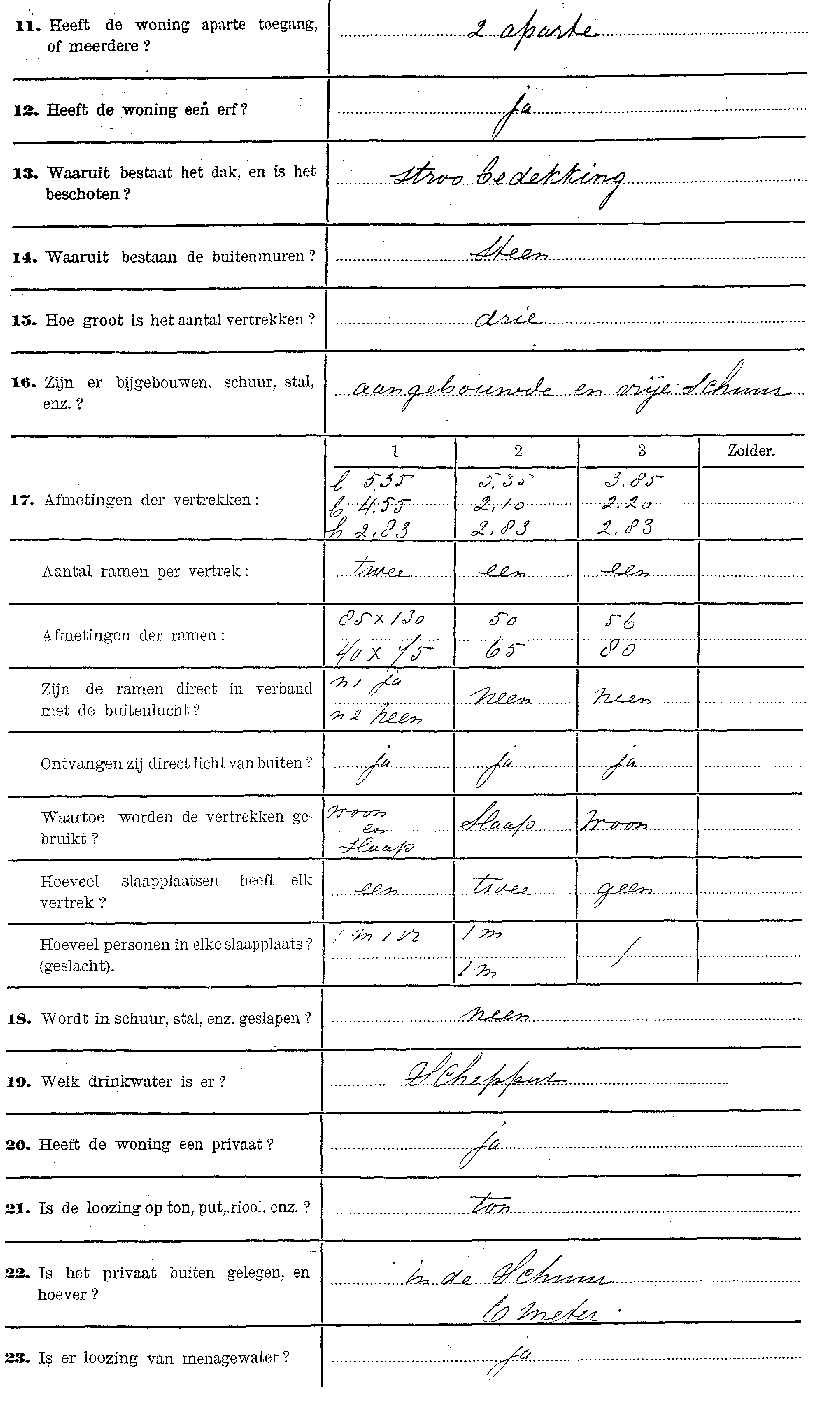 11. Heeft de woning aparte toegang, 2 aparte
of meerdere?
12. Heeft de woning een erf? ja
13. Waaruit bestaat het dak, en is het stroo bedekking
beschoten?
14. Waaruit bestaan de buitenmuren? Steen
15. Hoe groot is het aantal vertrekken? drie
16. Zijn er bijgebouwen, schuur, stal, aangebouwde en vrije Schuur
enz.?
1 2 3 Zolder.
l 5.35 5.35 3.85
17. Afmetingen der vertrekken: b 4.55 2.10 2.20
h 2.83 2.83 2.83
Aantal ramen per vertrek: twee een een
85 x 130 50 56
Afmetingen der ramen:
40 x 45 65 80
Zijn de ramen direct in verband n1 ja neen neen
met de buitenlucht? n2 neen
Ontvangen zij direct licht van buiten? ja ja ja
Waartoe worden de vertrekken ge- woon Slaap woon
bruikt? en
Slaap
Hoeveel slaapplaatsen heeft elk een twee geen
vertrek?
Hoeveel personen in elke slaapplaats? 1 m 1 vr 1 m /
(geslacht). 1 m
18. Wordt in schuur, stal, enz. geslapen? neen
19. Welk drinkwater is er? Schepput
20. Heeft de woning een privaat? ja
21. Is de loozing op ton, put, riool, enz.? ton
22. Is het privaat buiten gelegen, en in de Schuur
hoever? 6 meter.
23. Is er loozing van menagewater? ja